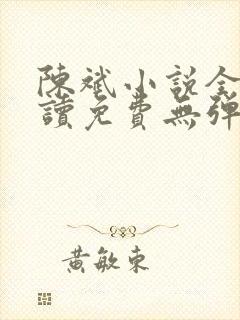 陳斌小説全
讀免費無彈
黃敏東